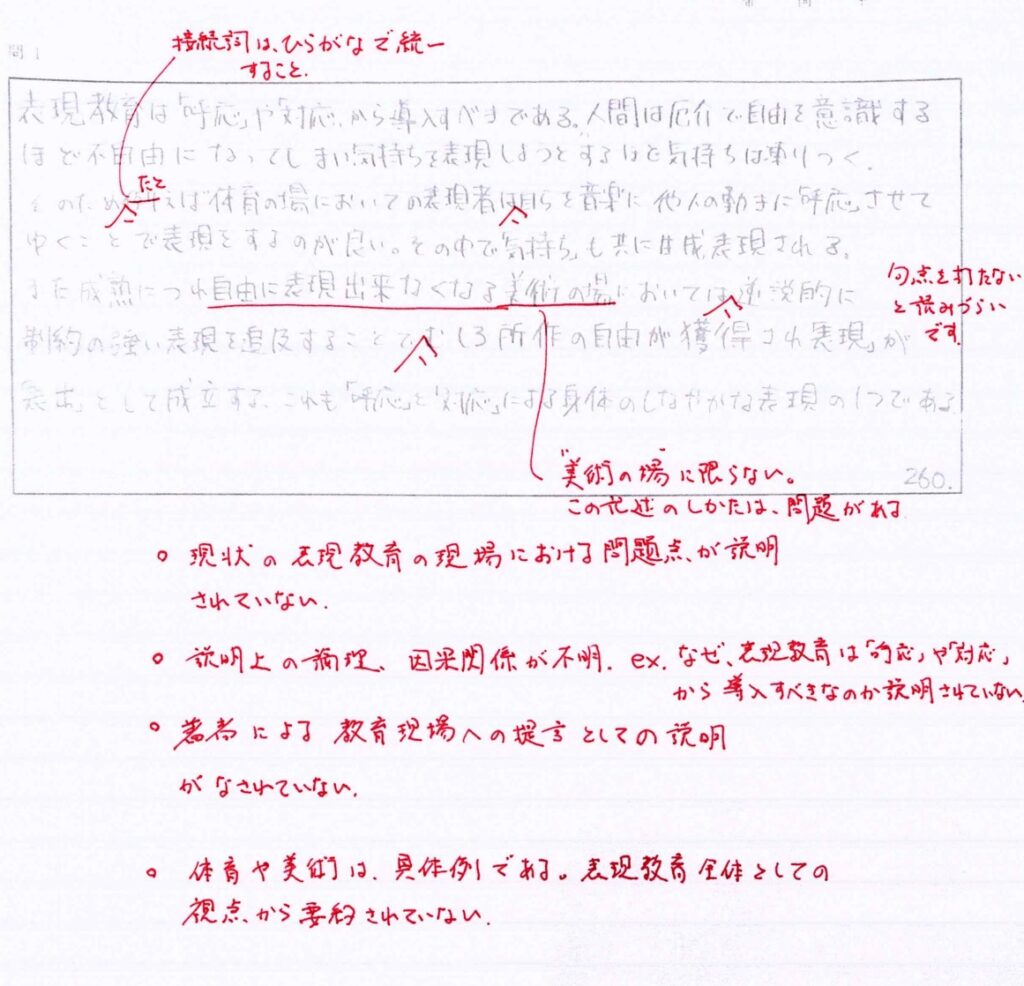 問1
接続詞は、ひらがなで統一
すること.
表現教育は「呼応」や「対応」から導入すべきである。人間は厄介で自由を意識する
ほど不自由になってしまい気持ちを表現しようとするほど気持ちは凍りつく
たと
そのため例えば体育の場においての表現者は自らを音楽に他人の動きに「呼応」させて
ゆくことで表現をするのが良い。その中で「気持ち」も共に生成表現される。
また成熟につれ自由に表現出来なくなる美術の場においては逆説的に
句点を打たない
と読みづらい
です.
制約の強い表現を追及することでむしろ所作の自由が獲得され「表現」が
「表出」として成立する。これも「呼応」と「対応」による身体のしなやかな表現の1つである
260.
"美術の場"に限らない。
この記述のしかたは、問題がある
○ 現状の表現教育の現場における問題点が説明
されていない.
○ 説明上の論理、因果関係が不明. ex. なぜ、表現教育は「呼応」や「対応」
から導入すべきなのか説明されていない.
○ 著者による教育現場への提言としての説明
がなされていない.
○ 体育や美術は、具体例である。表現教育全体としての
視点から要約されていない.